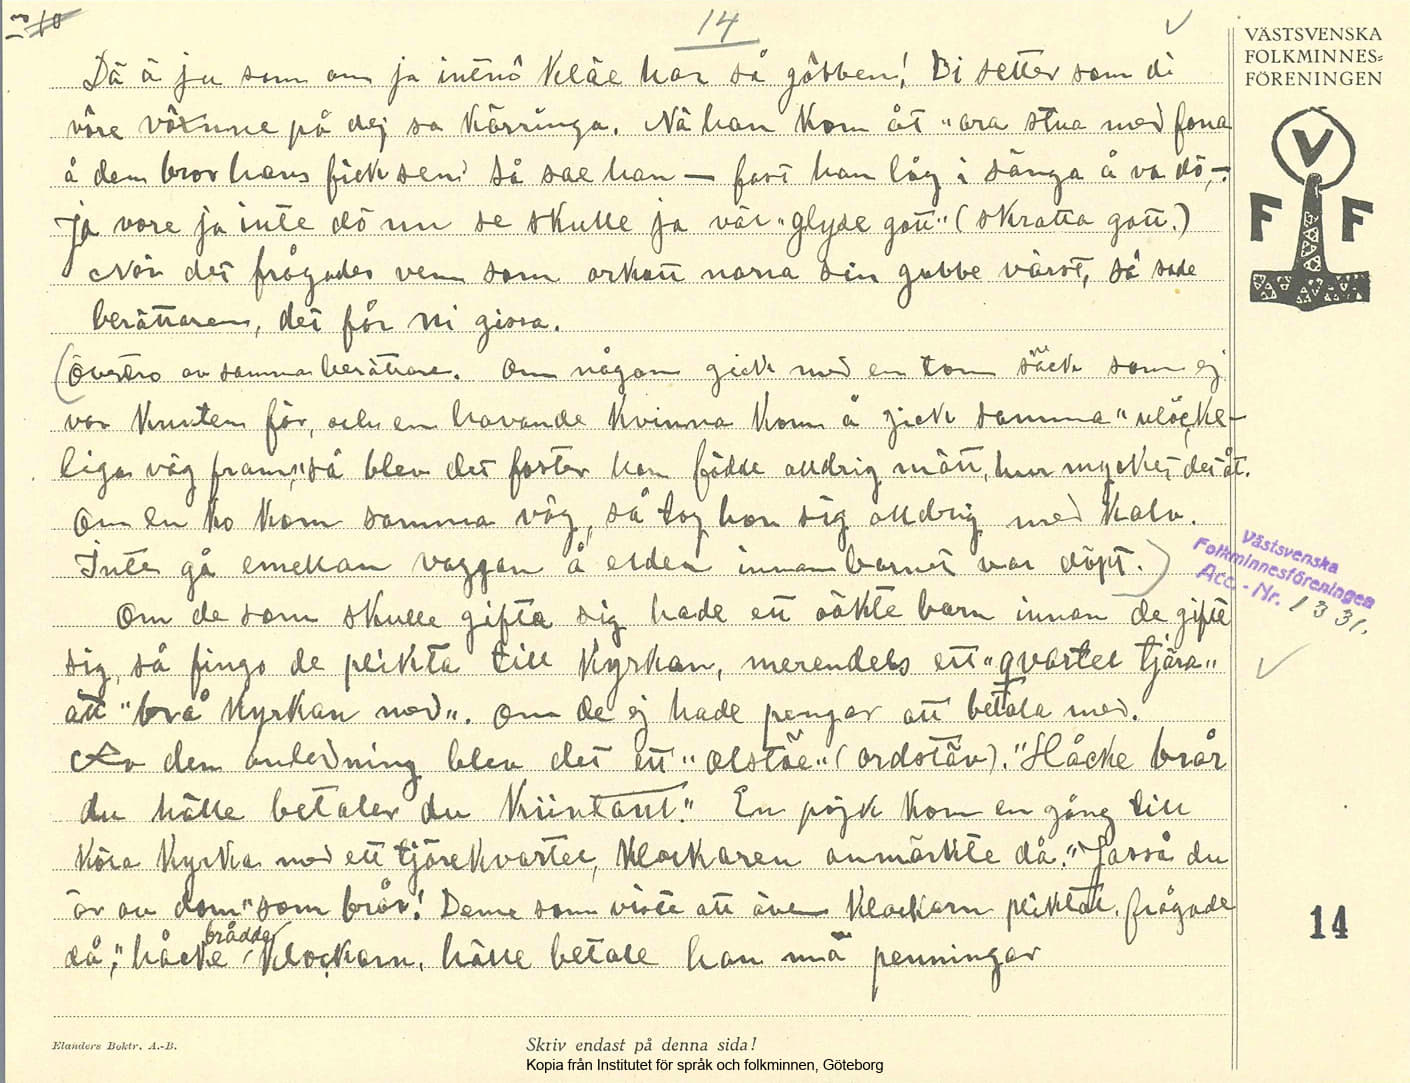 14
VÄSTSVENSKA
FOLKMINNES=
FÖRENINGEN
V
F F
Dä ä ju som om ja intnô Kläe har så göbben! Di setter som di
vôre vôxnne på dej sa Kärringa. Nä han Kom åt "ara stua med fona
å dem bror hans fick sen så sae han — fast han låg i sänga å va dö,-
Ja vore ja inte dö nu se skulle ja väl "glyse gott" (skratta gott.)
När det frågades vem som orkatt narra sin gubbe värst, så sade
berättaren, det får Ni gissa.
(Övertro av samma berättare. Om någon gick med en tom säck som ej
var Knuten för, och en havande Kvinna Kom å gick samma "ulöcke-
liga väg fram", så blev det foster hon födde alldrig mätt, hur mycket det åt.
Om en Ko Kom samma väg, så tog hon sig alldrig med Kalv.
Inte gå emellan vaggan å elden innan barnet var döpt.)
Om de som skulle gifta sig hade ett oäkta barn innan de gifte
sig, så fingo de plikta till Kyrkan, merendels ett "qvartel tjära"
att "brå Kyrkan med". Om de ej hade pengar att betala med.
Av den anledning blev det ett "olstäe" (ordstäv). "Håcke brår
du hälle betaler du Kuntant." En pojk Kom en gång till
Köra Kyrka med ett tjärekvartel, Klockaren anmärkte då. "Jasså du
är av dom "som brår"! Denne som viste att även Klockarn pliktat, frågade
då, "håcke brådde Klockarn, hälle betale han mä penningar
Västsvenska
Folkminnesföreningen
Acc.-Nr. 1331.
14
Elanders Boktr. A.-B.
Skriv endast på denna sida!
Kopia från Institutet för språk och folkminnen, Göteborg